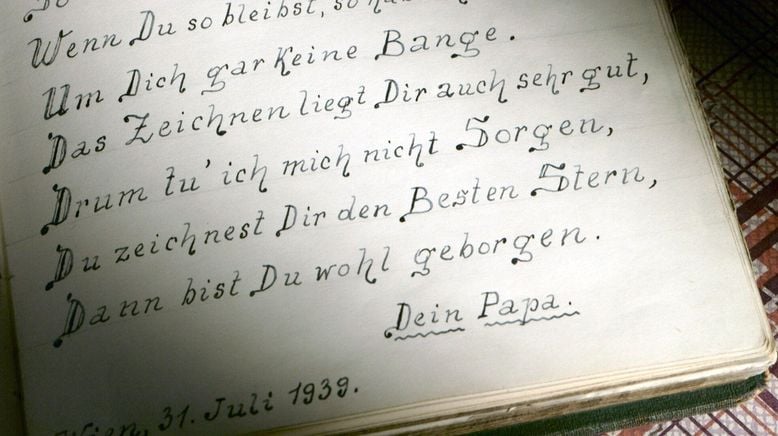 Wenn Du so bleibst, so
Um Dich gar keine Bange.
Das Zeichnen liegt Dir auch sehr gut,
Drum tu' ich mich nicht Sorgen,
Du zeichnest Dir den Besten Stern,
Dann bist Du wohl geborgen.
Dein Papa.
Wien, 31. Juli 1939.